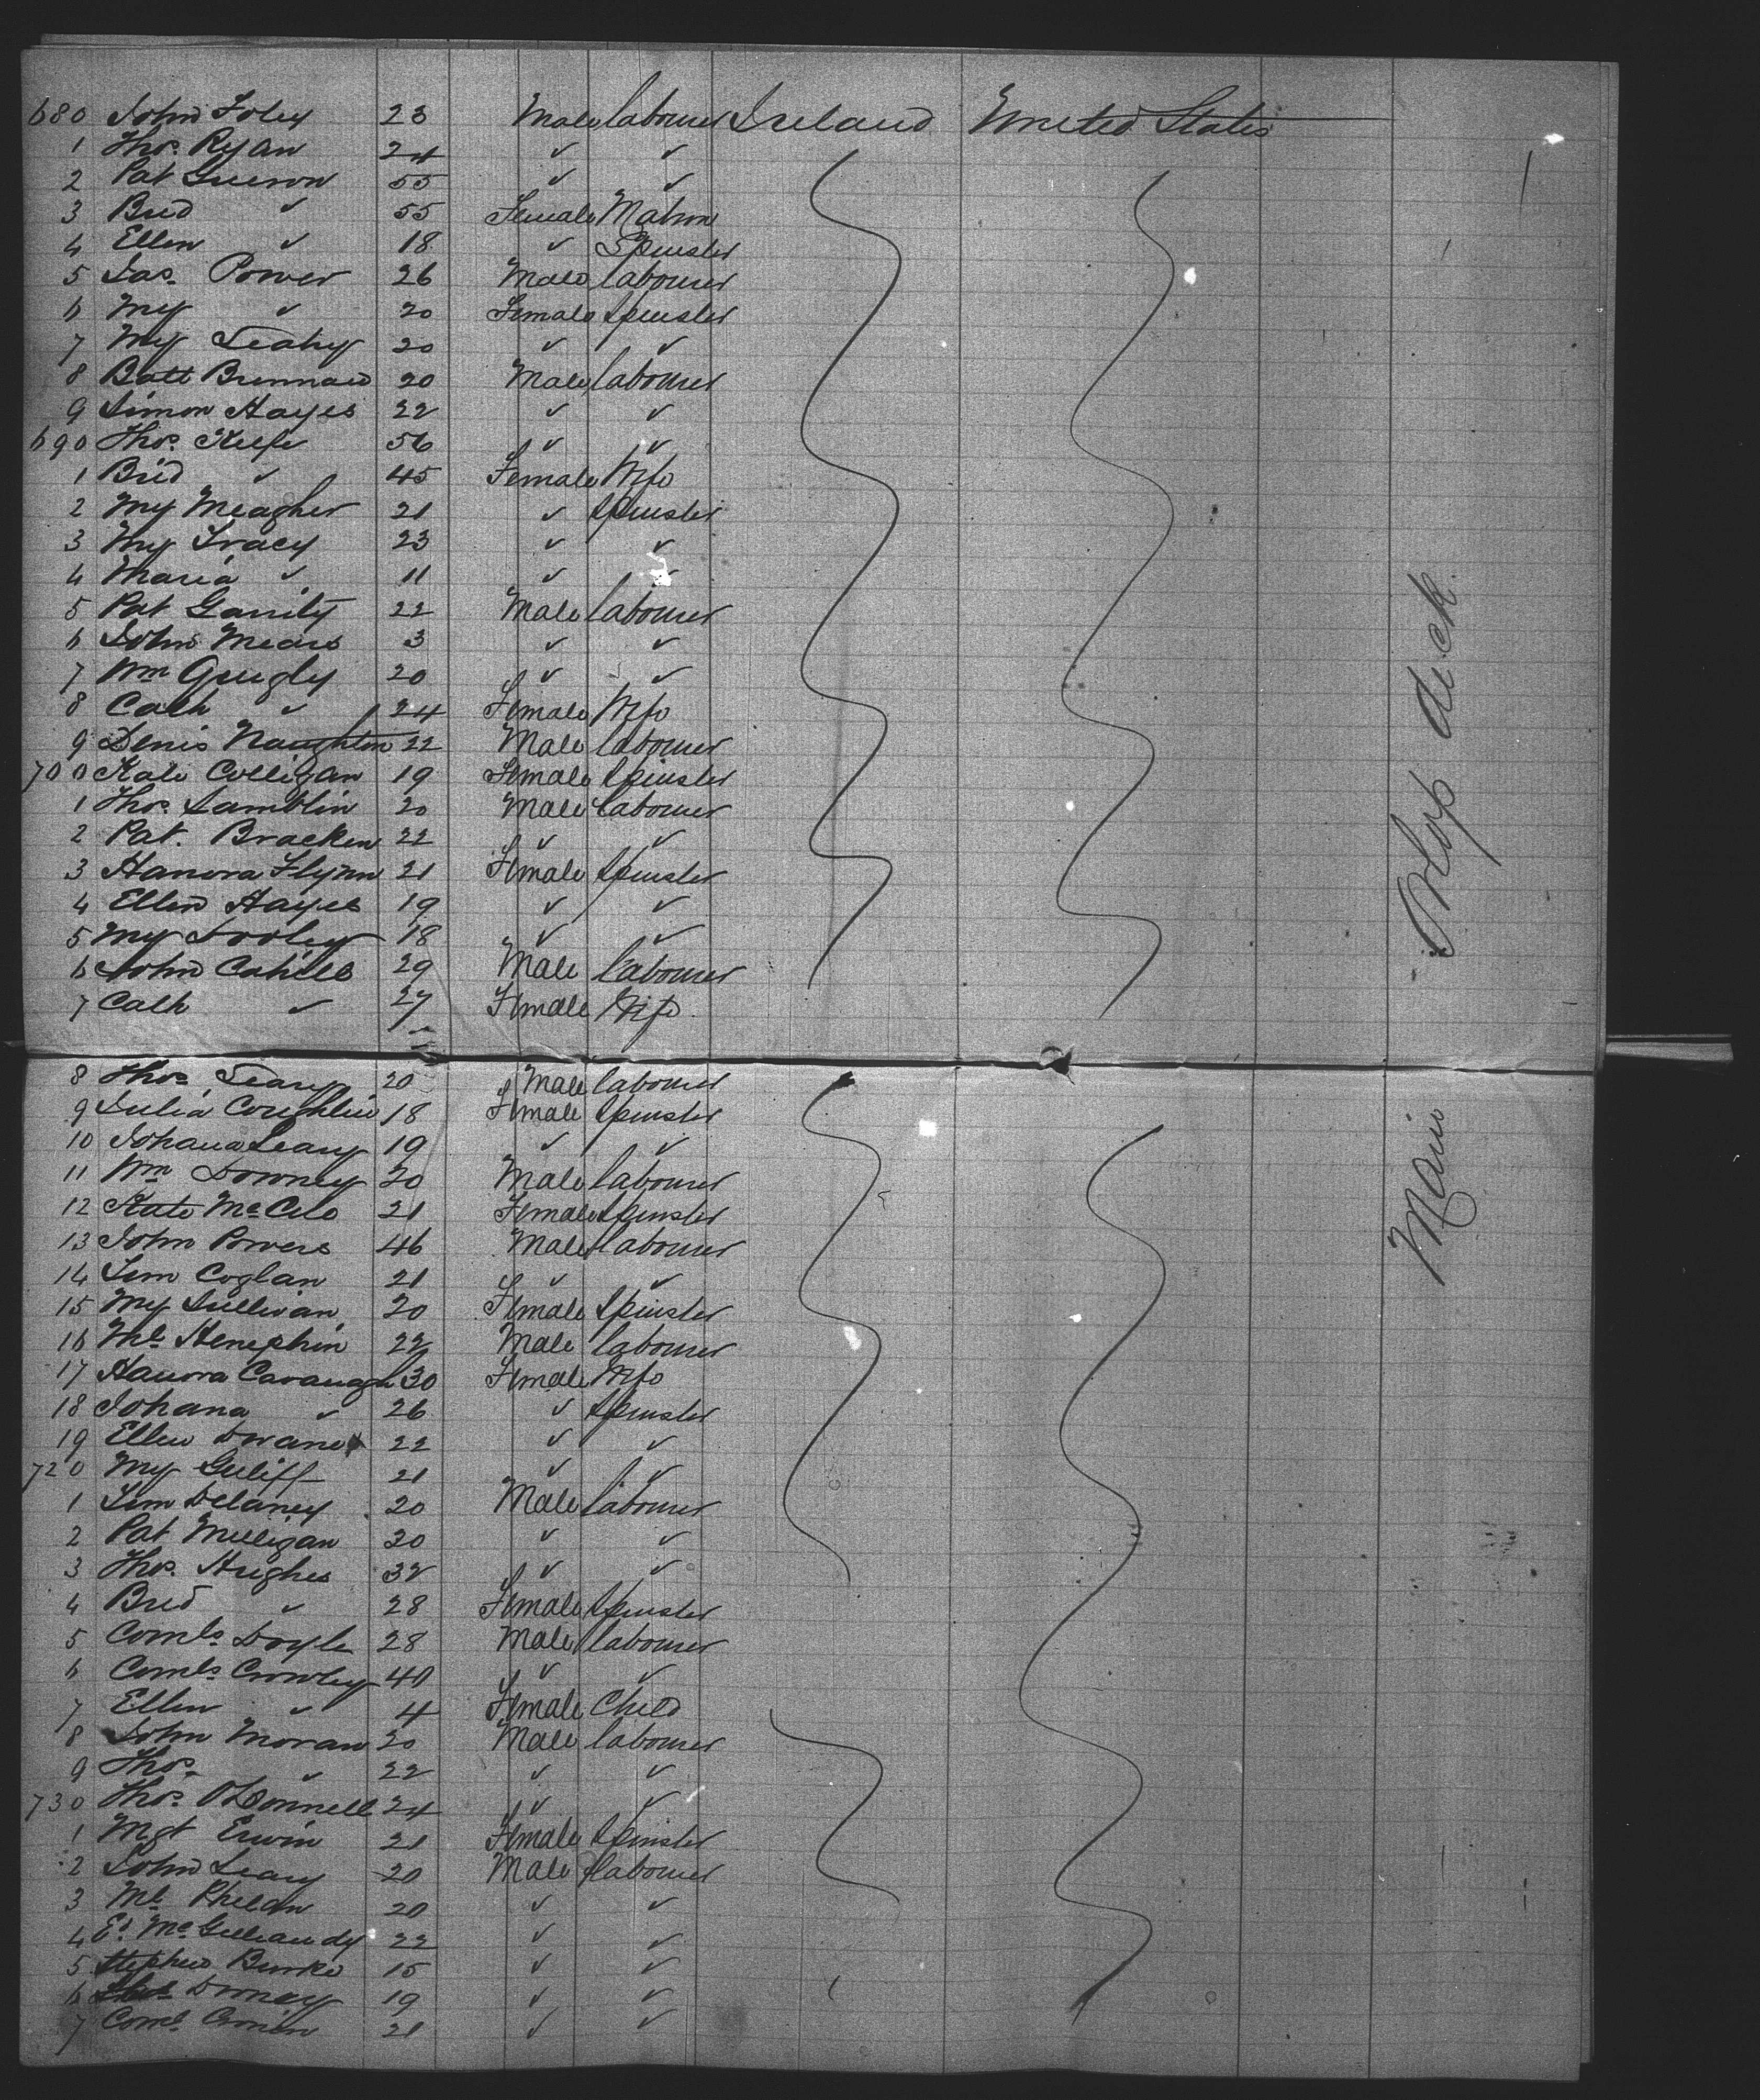 680 John Foley 23 Male labourer Ireland United States
1 Thos. Ryan 24 ✓ ✓
2 Pat 55 ✓ ✓
3 Brid ✓ 55 Female Matron
4 Ellen ✓ 18 ✓ Spinster
5 Jas. Power 26 Male labourer
6 My ✓ 20 Female Spinster
7 My Leahy 20 ✓ ✓
8 Batt Brennan 20 Male labourer
9 Simon Hayes 22 ✓ ✓
690 Thos. Keefe 56 ✓ ✓
1 Brid ✓ 45 Female Wife
2 My Meagher 21 ✓ Spinster
3 My Tracy 23 ✓ ✓
4 Maria ✓ 11 ✓ ✓
5 Pat Garrity 22 Male labourer
6 John Mears 3 ✓ ✓
7 Wm 20 ✓ ✓
8 Cath ✓ 24 Female Wife
9 Denis Naughton 22 Male labourer
700 Kate Colligan 19 Female Spinster
1 Thos. Lamblin 20 Male labourer
2 Pat. Bracken 22 ✓ ✓
3 Hanora Flynn 21 Female Spinster
4 Ellen Hayes 19 ✓ ✓
5 My Dooley 18 ✓ ✓
6 John Cahill 29 Male labourer
7 Cath ✓ 27 Female Wife
Orlop deck
8 Thos. Leary 20 Male labourer
9 Julia Coughlin 18 Female Spinster
10 Johana Leary 19 ✓ ✓
11 Wm Downey 20 Male labourer
12 Kate 21 Female Spinster
13 John Powers 46 Male labourer
14 Jim Coglan 21 ✓ ✓
15 My Sullivan 20 Female Spinster
16 Ml. Henephin 22 Male labourer
17 Hanora Cavanagh 30 Female Wife
18 Johana ✓ 26 ✓ Spinster
19 Ellen Dwane 22 ✓ ✓
720 My 21 ✓ ✓
1 Jim Delaney 20 Male labourer
2 Pat Milligan 30 ✓ ✓
3 Thos. Hughes 32 ✓ ✓
4 Brid ✓ 28 Female Spinster
5 Corns. Doyle 28 Male labourer
6 Corns. Crowley 40 ✓ ✓
7 Ellen ✓ 4 Female Child
8 John Moran 20 Male labourer
9 Thos. ✓ 22 ✓ ✓
730 Thos. O'Donnell 24 ✓ ✓
1 Mgt Erwin 21 Female Spinster
2 John Leary 20 Male labourer
3 Ml. Phelan 20 ✓ ✓
4 Ed. 22 ✓ ✓
5 Stephen Burke 15 ✓ ✓
6 Downey 19 ✓ ✓
7 Corns. Cronin 21 ✓ ✓
Main